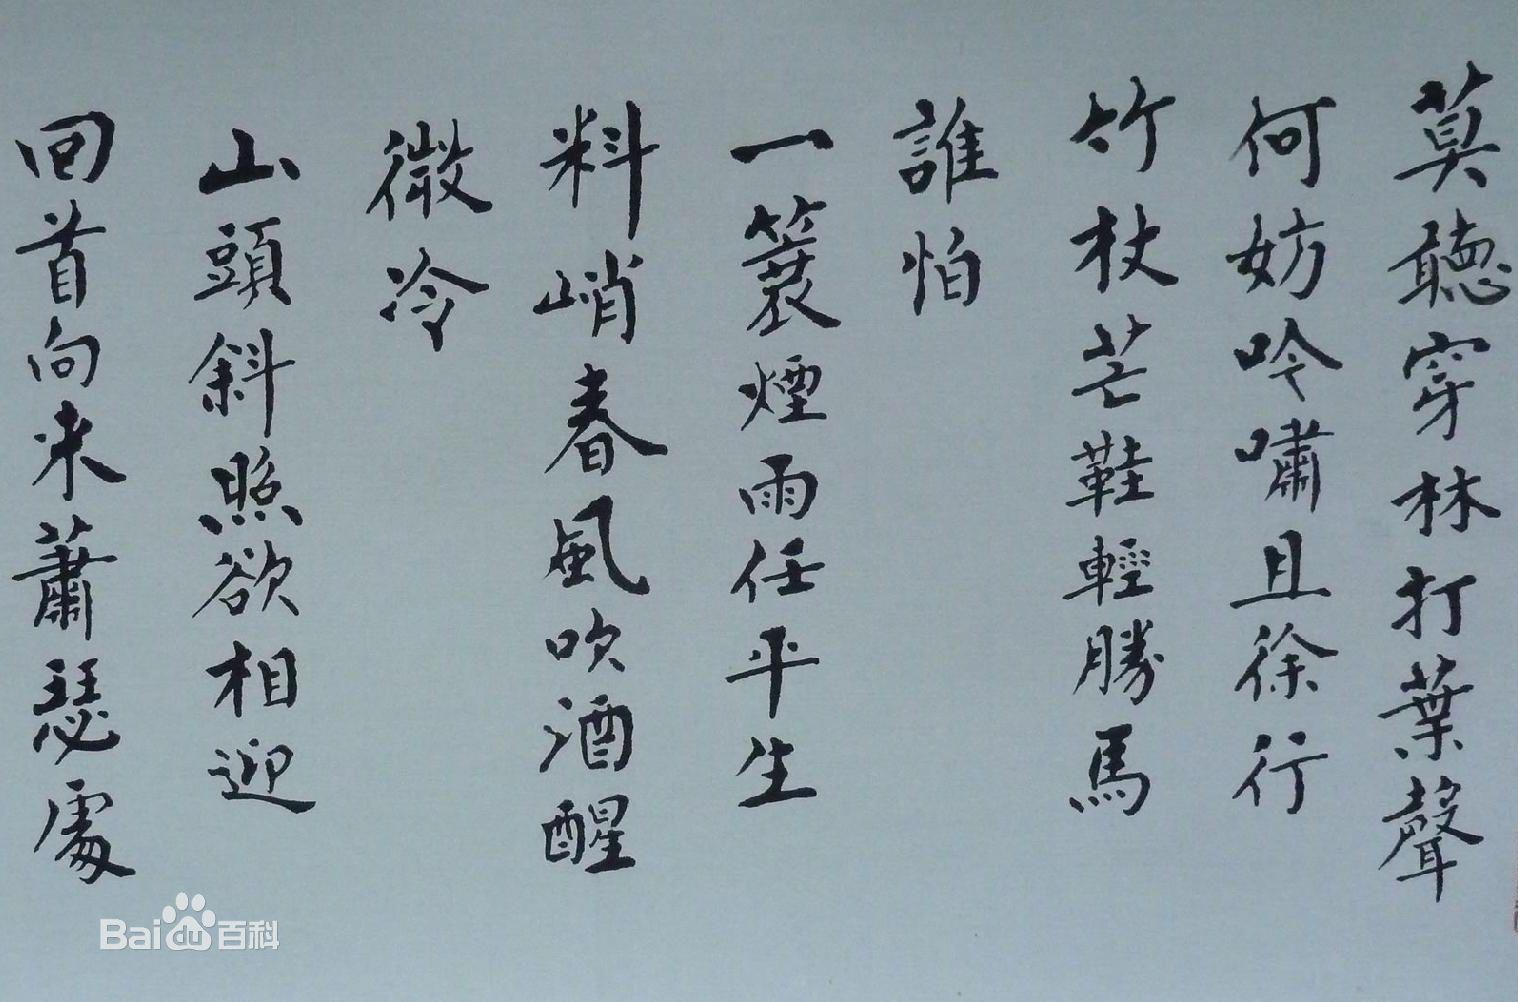 莫聽穿林打葉聲
何妨吟嘯且徐行
竹杖芒鞋輕勝馬
誰怕
一蓑煙雨任平生
料峭春風吹酒醒
微冷
山頭斜照欲相迎
回首向来蕭瑟處
Bai du 百科